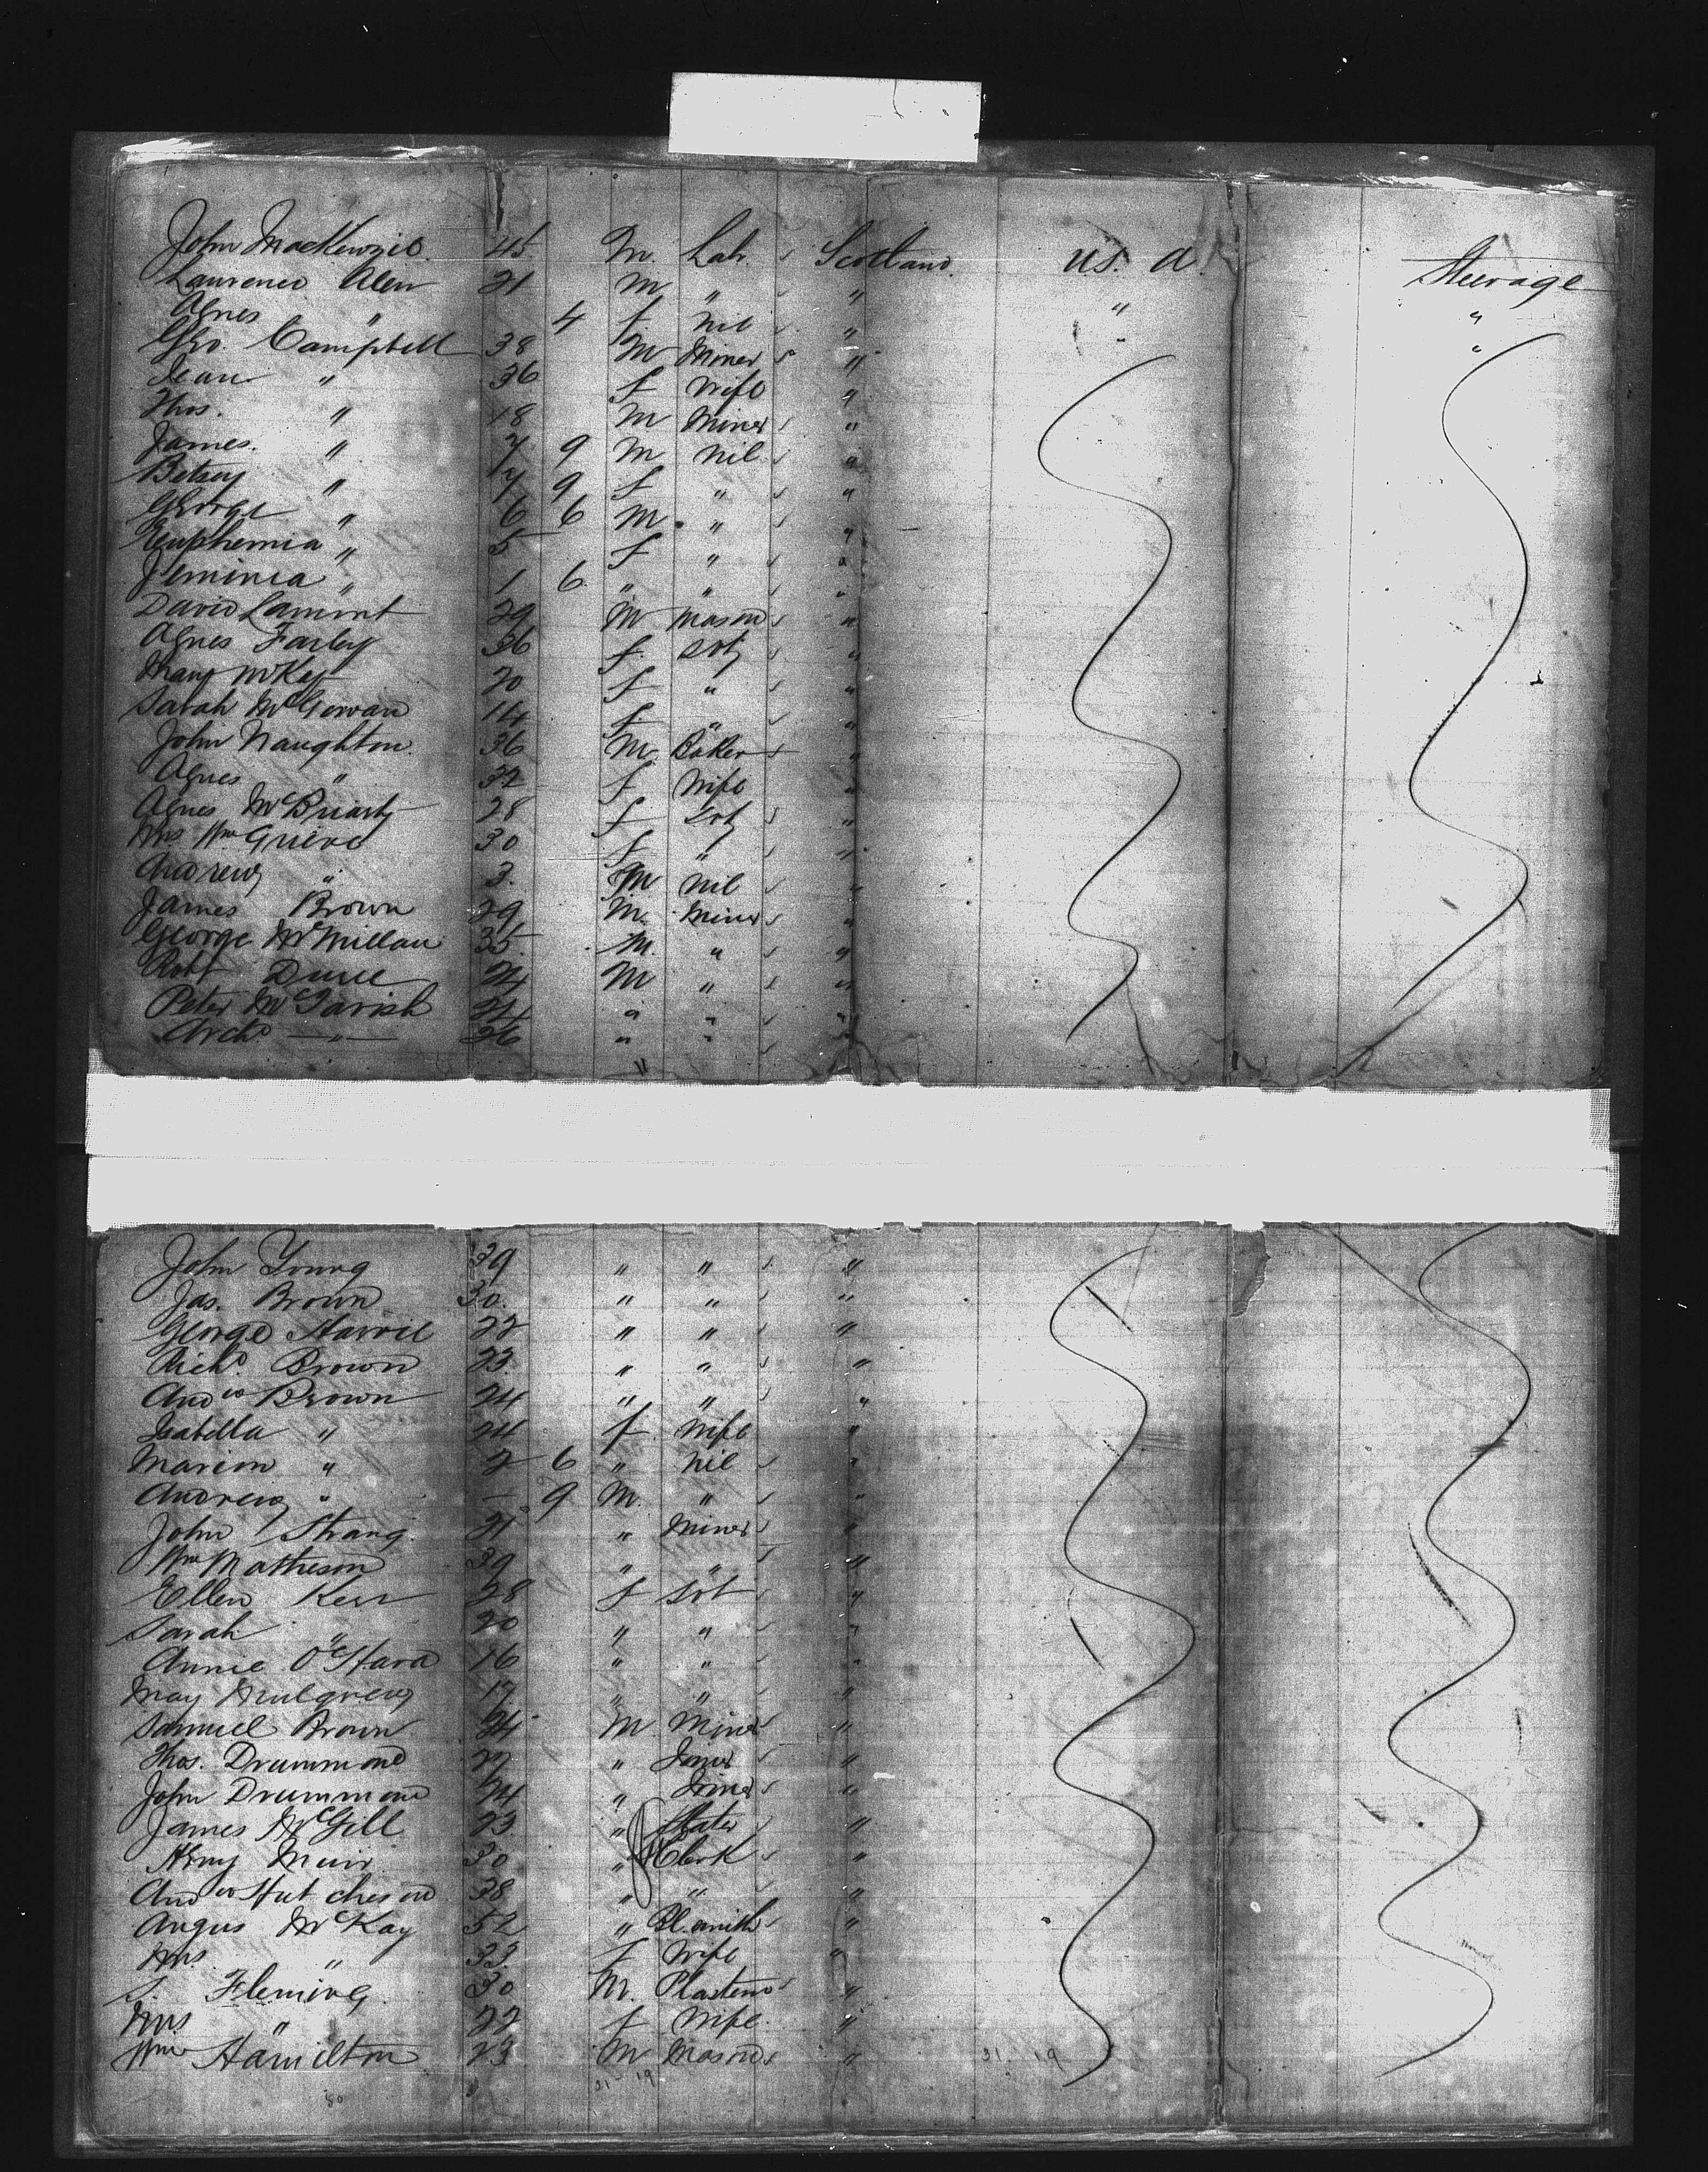 John MacKenzie 45 M. Lab. Scotland. U.S. A. Steerage
Laurence Weir 21 M " " " "
Agnes " 4 f nil " " "
Geo. Campbell 38 M Miner "
Jean " 36 f Wife "
Thos. " 18 M Miner "
James. " 7 9 M nil "
Betsey " 7 9 f " "
George " 6 6 M " "
Euphemia " 5 f " "
Jemimia " 1 6 " " "
David Lamont 29 M Mason "
Agnes Farley 36 f "
Mary McKay 20 f " "
Sarah McGowan 14 f " "
John Naughton 36 M Baker "
Agnes " 32 f Wife "
Agnes 28 f "
Mrs Wm Grieve 30 f " "
Andrew " 3. M nil "
James Brown 29 M. Miner "
George McMillan 35 M. " "
Robt 24 M " "
Peter McTavish 24 " " "
Archd —"— 26 " " "
John Young 39 " " "
Jas. Brown 30. " " "
George 22 " " "
Richd. Brown 23. " " "
Andw Brown 24 " " "
Isabella " 24 f Wife "
Marion " 2 6 " nil "
Andrew " — 9 M. " "
John Strang. 21 " Miner "
Wm Matheson 39 " " "
Ellen Kerr 28 f "
Sarah " 20 " " "
Annie O'Hara 16 " " "
May Mulgrew 17 " " "
Samuel Brown 24 M Miner "
Thos. Drummond 22 " Joiner "
John Drummond 24 " Joiner "
James McGill 23 " Slater "
Hy Muir 30 " Clerk "
Andw Hutcheson 38 " " "
Angus McKay 52 " Bl.smith "
Mrs " 33. f Wife "
S. Fleming 30 M. "
Mrs " 22 f Wife. "
Wm Hamilton 23 M Mason "
31 19 31 19
50